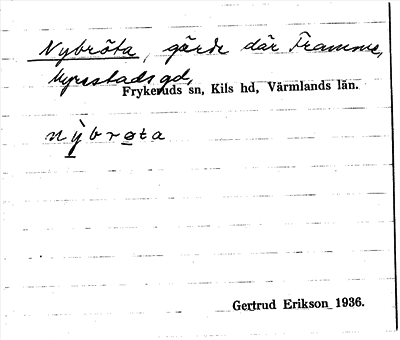 Nybröta, gärde där Framme,
gd,
Frykeruds sn, Kils hd, Värmlands län.
nỳbrøta
Gertrud Erikson 1936.